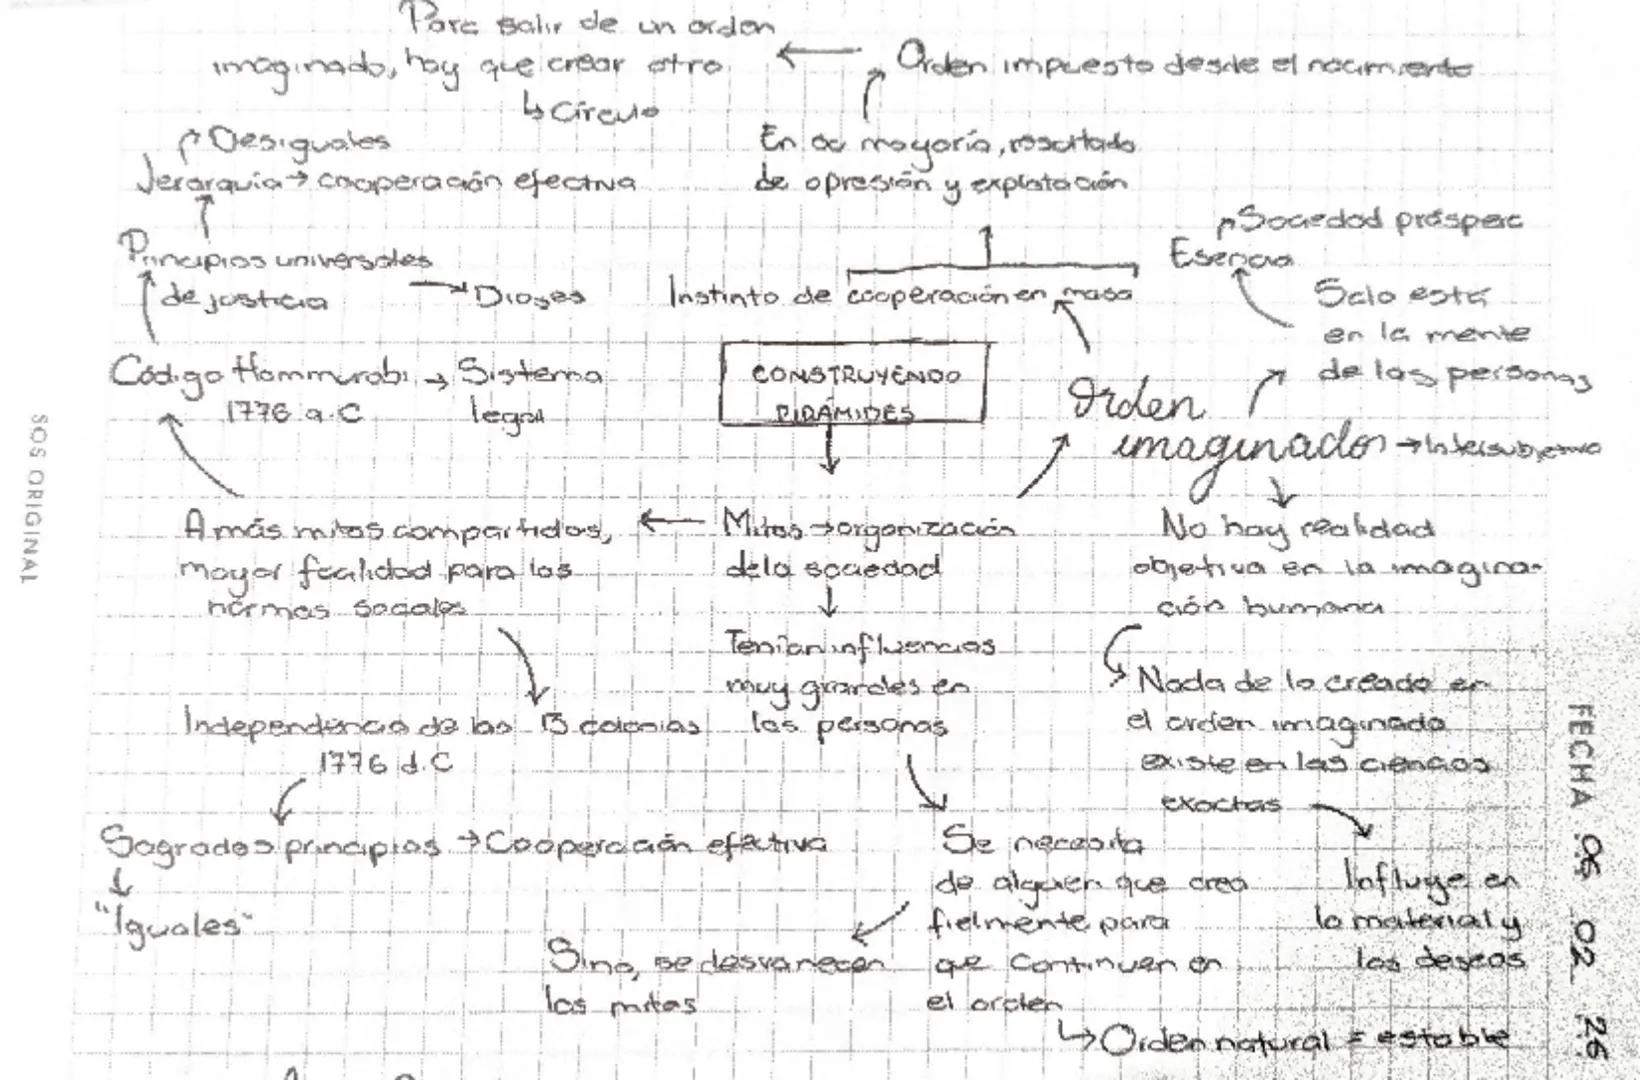 Para salir de un orden
imaginado, hay que crear otro
↳ Círculo
← Orden impuesto desde el nacimiento
Desiguales
Jerarquía → cooperación efectiva
En su mayoría, resultado
de opresión y explotación
Principios universales
de justicia → Dioses
Instinto de cooperación en masa
Sociedad próspera
Esencia
Solo está
en la mente
de las personas
Código Hammurabi → Sistema
1776 a.C legal
CONSTRUYENDO
PIRÁMIDES
Orden
imaginado → Intersubjetivo
A más mitos compartidos,
mayor fcalidad para las
normas sociales
← Mitos → organización
de la sociedad
No hay realidad
objetiva en la imagina-
ción humana
Tenían influencias
muy grandes en
las personas
Nada de lo creado en
el orden imaginado
existe en las ciencias
exactas
Independencia de las 13 colonias
1776 d.C
Sagrados principios → Cooperación efectiva
"Iguales"
Se necesita
de alguien que crea
fielmente para
que continuen en
el orden
↳ Orden natural = estable
Sino, se desvanecen
los mitos
Influye en
lo material y
los deseos
SOS ORIGINAL
FECHA 06 02 26